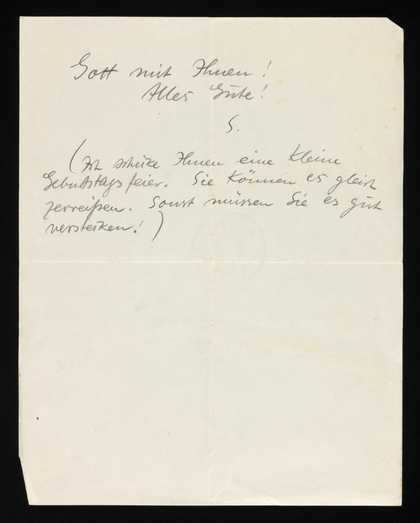 Gott mit Ihnen!
Alles Gute!
S.
(Ich schicke Ihnen eine kleine
Geburtstagsfeier. Sie können es gleich
zerreißen. Sonst müssen Sie es gut
verstecken!)